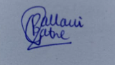 Pallavi
Sabne